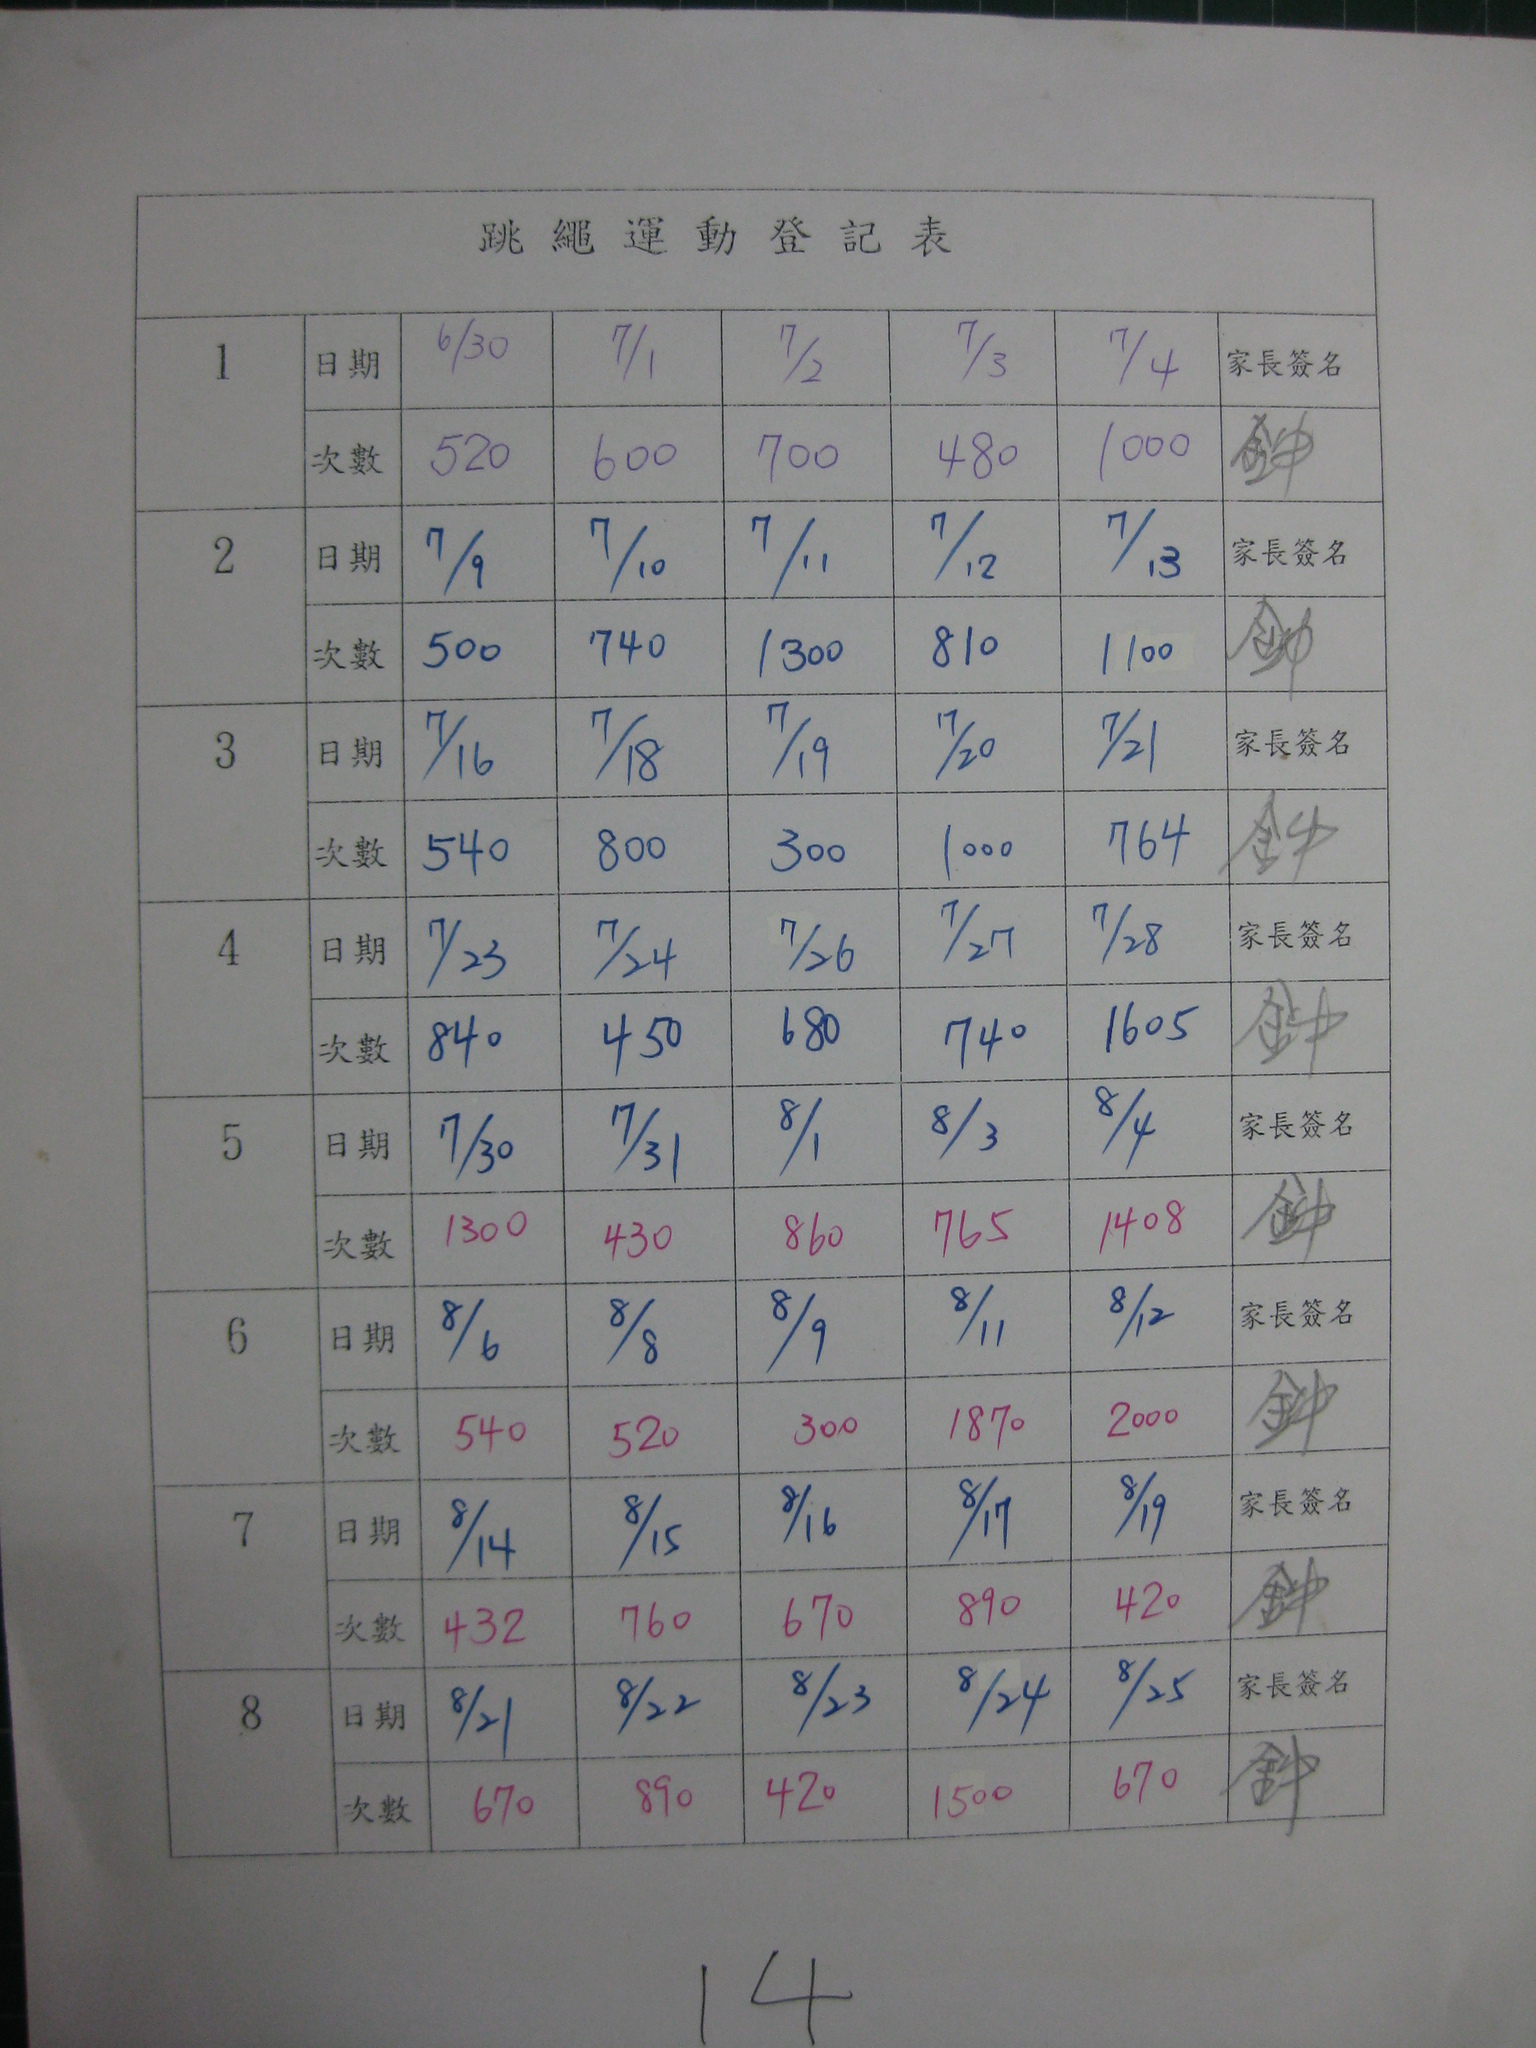 跳繩運動登記表
1 日期 6/30 7/1 7/2 7/3 7/4 家長簽名
次數 520 600 700 480 1000
2 日期 7/9 7/10 7/11 7/12 7/13 家長簽名
次數 500 740 1300 810 1100
3 日期 7/16 7/18 7/19 7/20 7/21 家長簽名
次數 540 800 300 1000 764
4 日期 7/23 7/24 7/26 7/27 7/28 家長簽名
次數 840 450 680 740 1605
5 日期 7/30 7/31 8/1 8/3 8/4 家長簽名
次數 1300 430 860 765 1408
6 日期 8/6 8/8 8/9 8/11 8/12 家長簽名
次數 540 520 300 1870 2000
7 日期 8/14 8/15 8/16 8/17 8/19 家長簽名
次數 432 760 670 890 420
8 日期 8/21 8/22 8/23 8/24 8/25 家長簽名
次數 670 890 420 1500 670
14